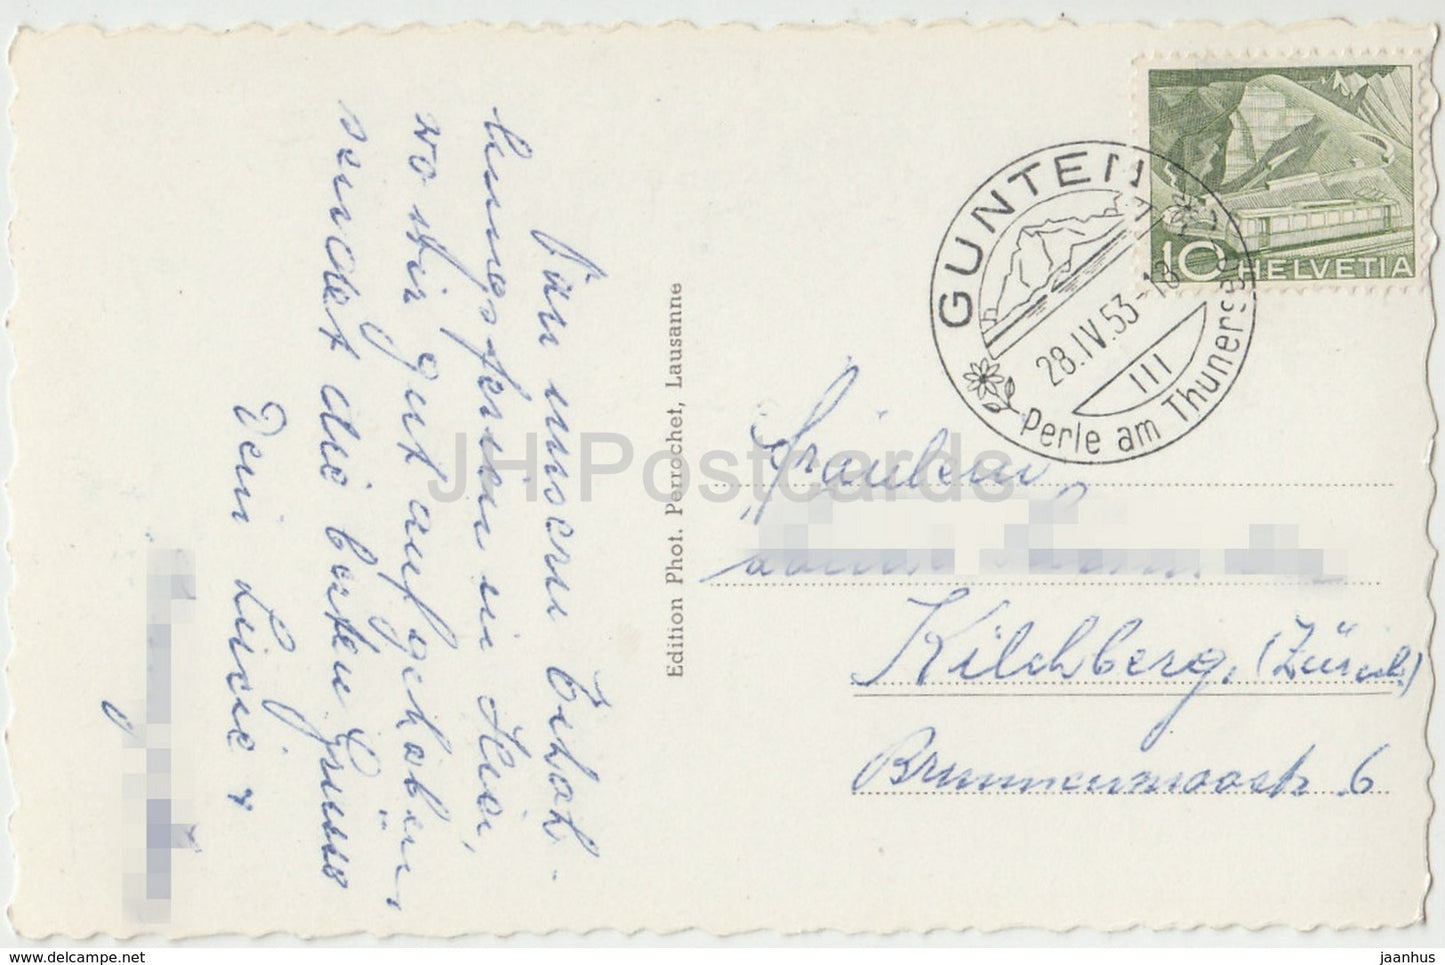 Von unsern Erhol-
lungsferien in
wo wir gut aufgehoben,
sendet die besten Grüsse
Dein Lisie &
Edition Phot. Perrochet, Lausanne
GUNTEN
28.IV.53-18
III
Perle am Thunersee
10 HELVETIA
Fräulein
Kilchberg, (Zürich)
Brunnenmoosstr. 6
JH Postcards
www.delcampe.net
jaanhus